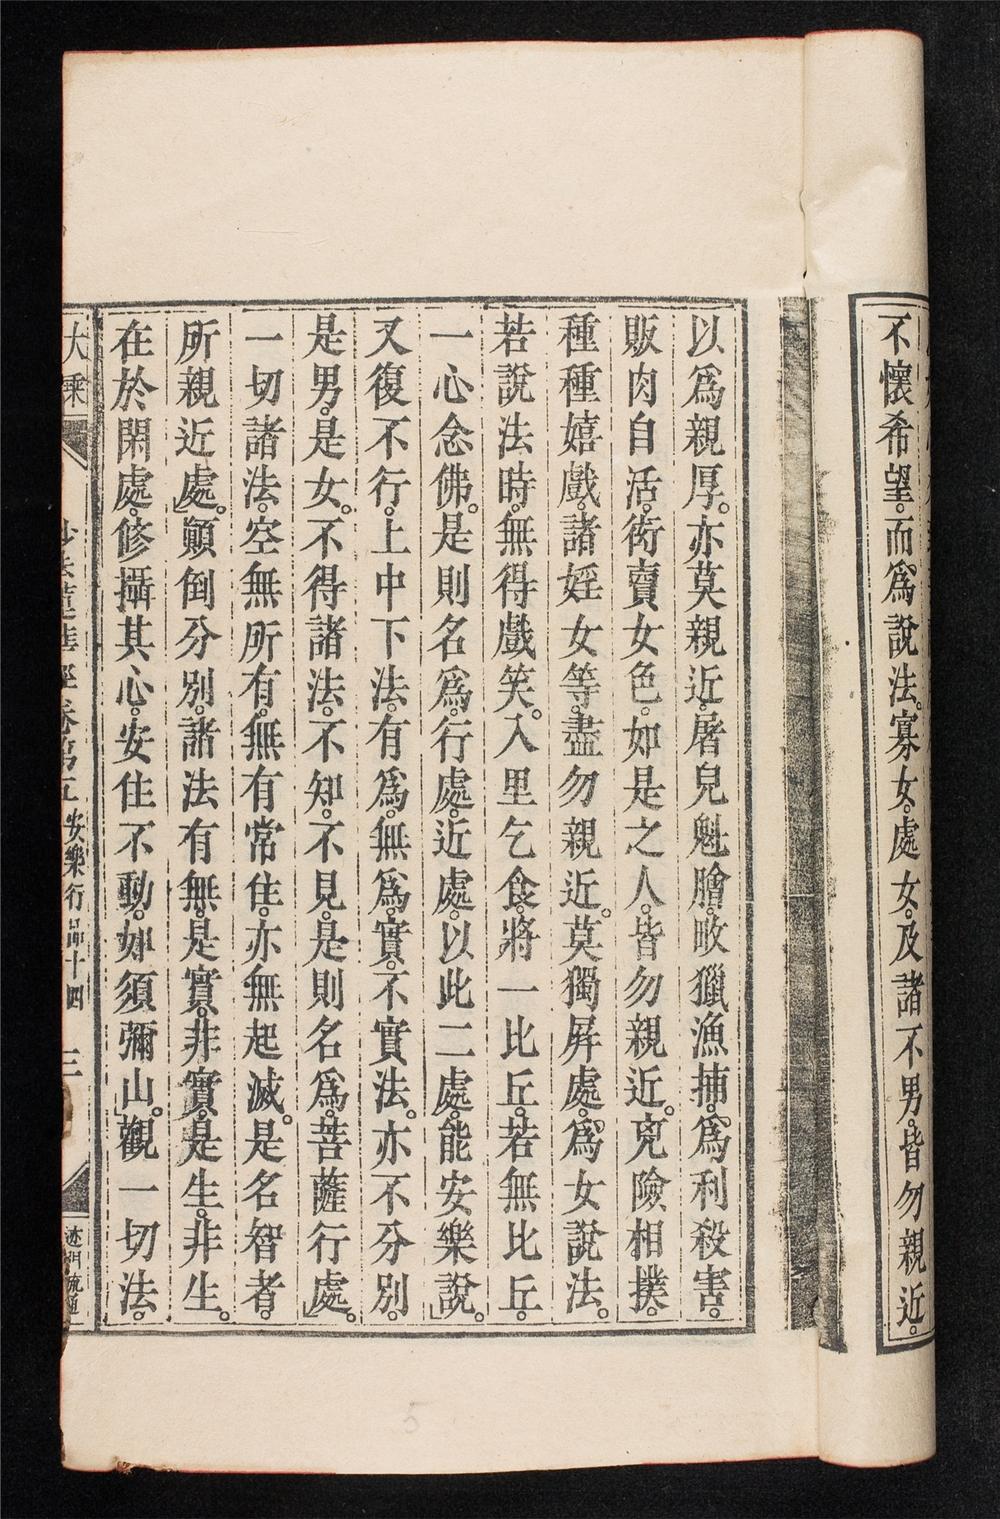 不懷希望。而爲說法。寡女。處女。及諸不男。皆勿親近。
以爲親厚。亦莫親近。屠兒魁膾。畋獵漁捕。爲利殺害。
販肉自活。衒賣女色。如是之人。皆勿親近。兇險相撲。
種種嬉戲。諸婬女等。盡勿親近。莫獨屏處。爲女說法。
若說法時。無得戲笑。入里乞食。將一比丘。若無比丘。
一心念佛。是則名爲。行處。近處。以此二處。能安樂說。
又復不行。上中下法。有爲。無爲。實。不實法。亦不分別。
是男。是女。不得諸法。不知。不見。是則名爲。菩薩行處。
一切諸法。空無所有。無有常住。亦無起滅。是名智者。
所親近處。顚倒分別。諸法有無。是實。非實。是生。非生。
在於閑處。修攝其心。安住不動。如須彌山。觀一切法。
大乘 妙法蓮華經卷第五 安樂行品十四 三 迹門流通